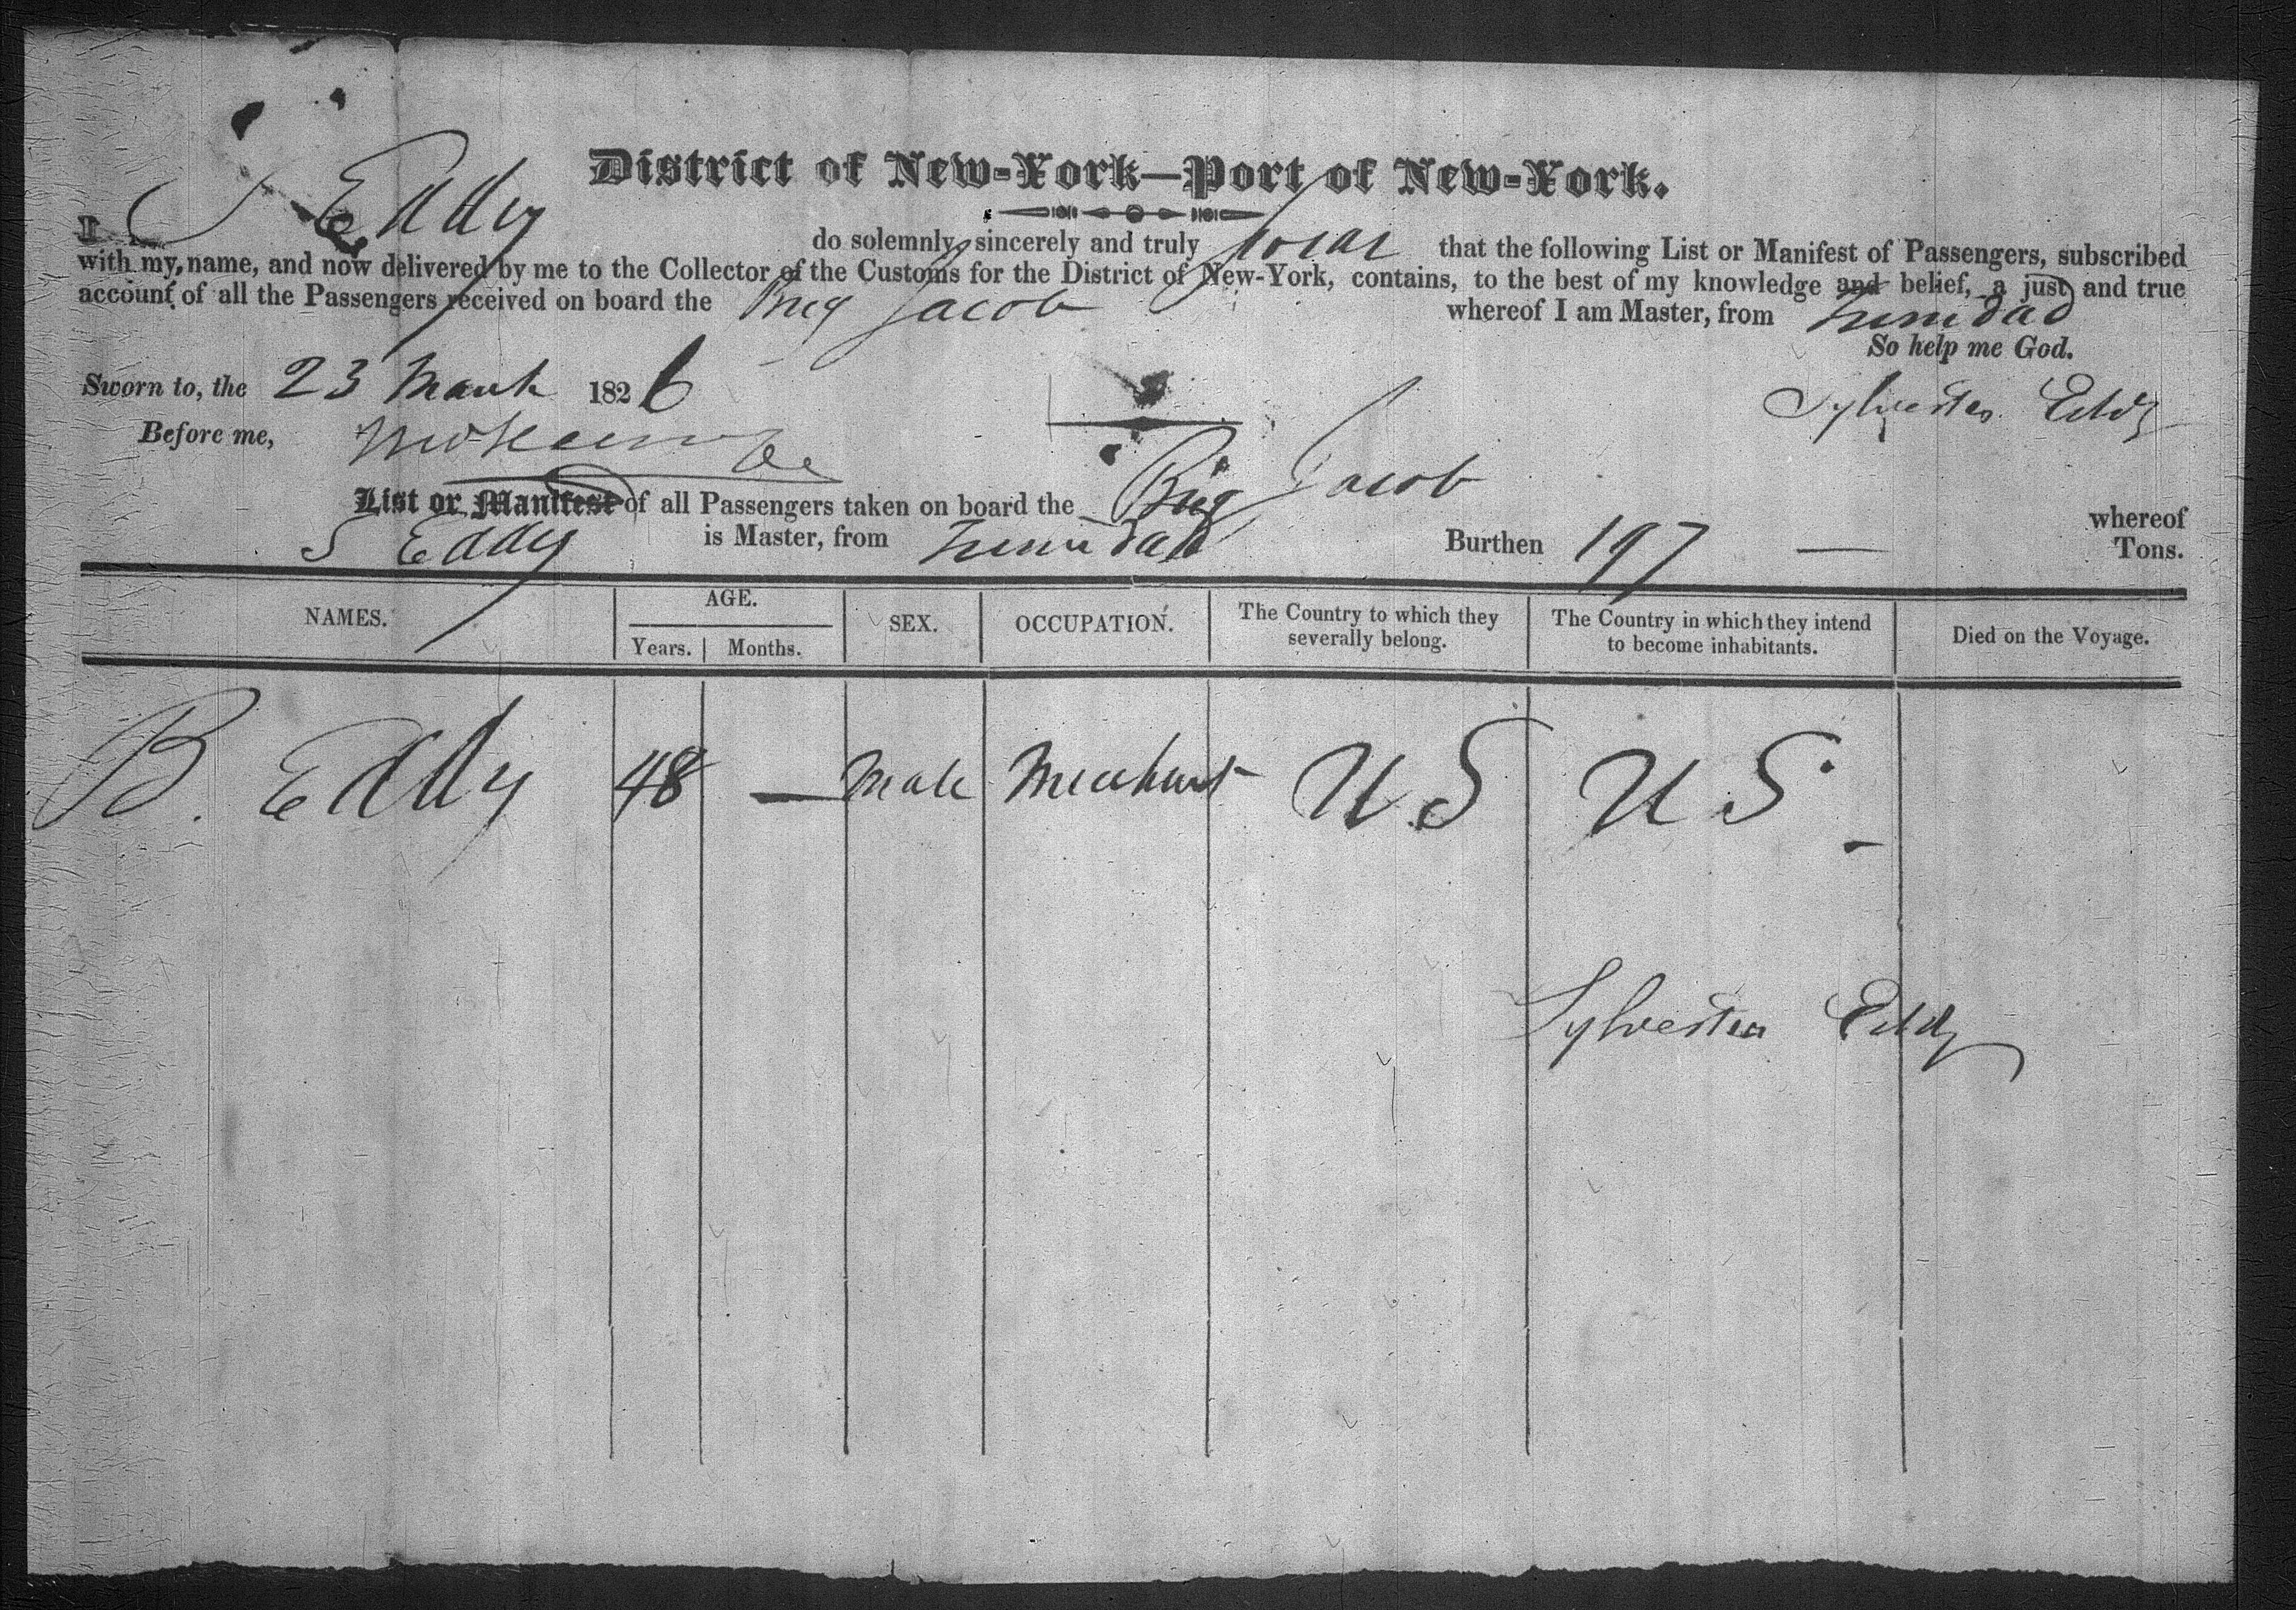 District of New-York—Port of New-York.
I S Eddy do solemnly, sincerely and truly swear that the following List or Manifest of Passengers, subscribed
with my name, and now delivered by me to the Collector of the Customs for the District of New-York, contains, to the best of my knowledge and belief, a just and true
account of all the Passengers received on board the Brig Jacob whereof I am Master, from Trinidad
So help me God.
Sworn to, the 23 March 1826 Sylvester Eddy
Before me,
List or Manifest of all Passengers taken on board the Brig Jacob whereof
S Eddy is Master, from Trinidad Burthen 197 — Tons.
NAMES. AGE. Years. Months. SEX. OCCUPATION. The Country to which they severally belong. The Country in which they intend to become inhabitants. Died on the Voyage.
B. Eddy 48 — Male Merchant U.S U S.
Sylvester Eddy